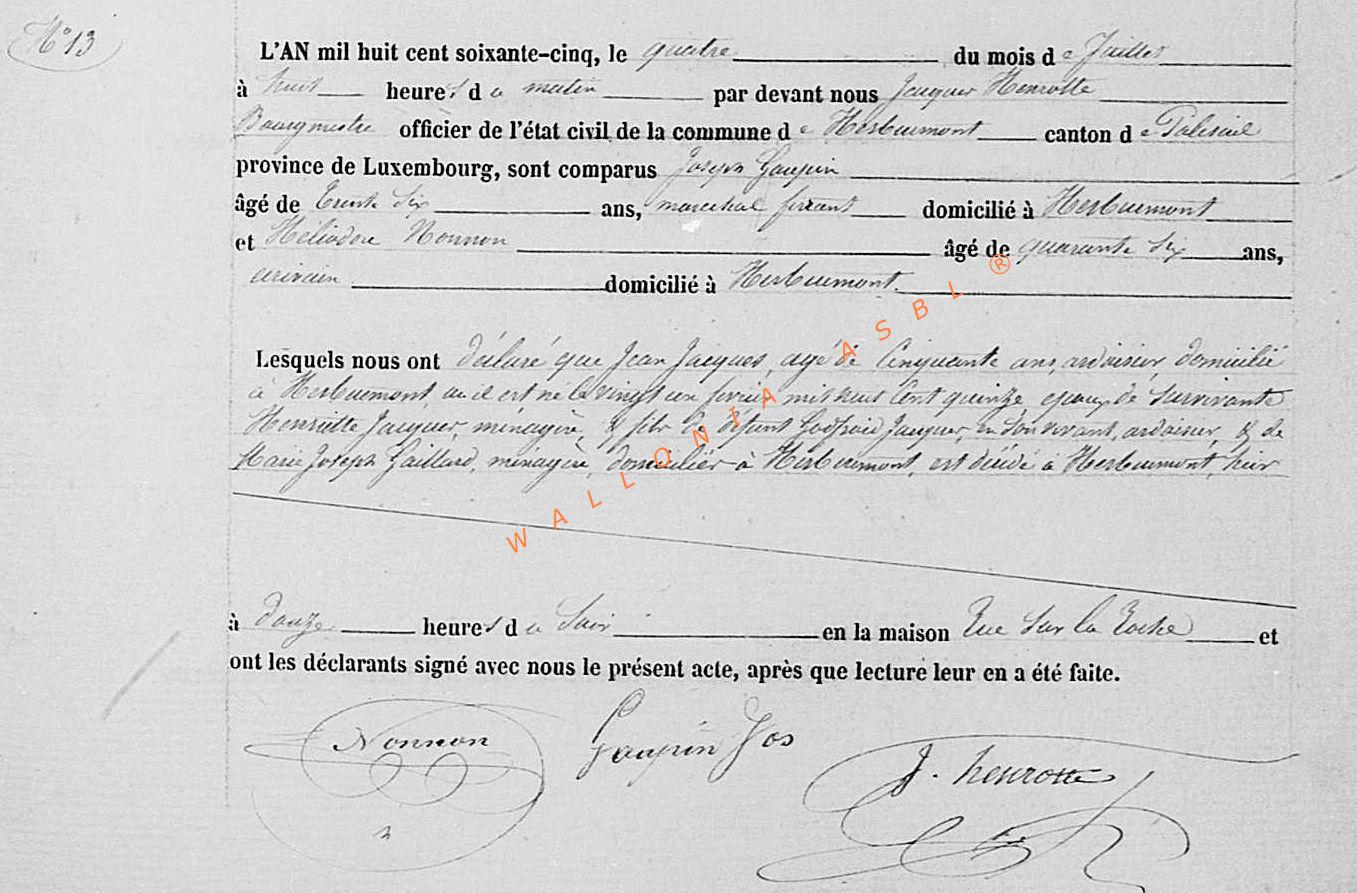 N° 13
L'AN mil huit cent soixante-cinq, le quatre du mois de Juillet
à huit heures du matin par devant nous Jacques Henrotte
Bourgmestre officier de l'état civil de la commune de Herbeumont canton de Paliseul
province de Luxembourg, sont comparus Joseph Gaupin
âgé de trente six ans, marechal ferrant domicilié à Herbeumont
et Héliodore Nonnon âgé de quarante six ans,
écrivain domicilié à Herbeumont.
Lesquels nous ont déclaré que Jean Jacques, agé de Cinquante ans, ardoisier domicilié
à Herbeumont, où il est né le vingt un fevrier mil huit Cent quinze, epoux de Survivante
Henriette Jacques, ménagère, & fils de défunt Godfroid Jacques, en son vivant, ardoisier, & de
Marie Joseph Gaillard, ménagère, domiciliés à Herbeumont, est décédé à Herbeumont, hier
à douze heures du Soir en la maison Rue Sur la Roche et
ont les déclarants signé avec nous le présent acte, après que lecture leur en a été faite.
Nonnon Gaupin Jos
J. henrotte
WALLONIA ASBL ®